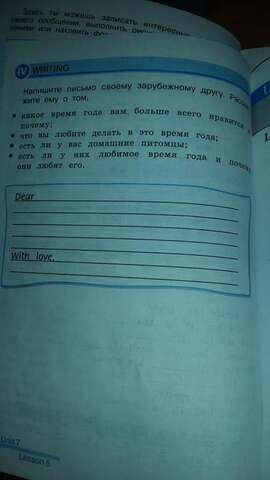 Здесь ты можешь записать интересные
своего сообщения, выполнить
или наклеить
IV WRITING
Напишите письмо своему зарубежному другу. Расска-
жите ему о том,
• какое время года вам больше всего нравится и
почему;
• что вы любите делать в это время года;
• есть ли у вас домашние питомцы;
• есть ли у них любимое время года и почему
они любят его.
Dear
With love,
Unit 7
Lesson 5